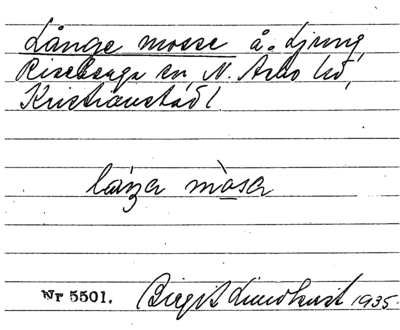 Långe mosse å. Ljung,
Riseberga sn, N. Åsbo hd,
Kristianstad l.
låŋa mosa
Nr 5501. Birgit Lindkvist 1935.